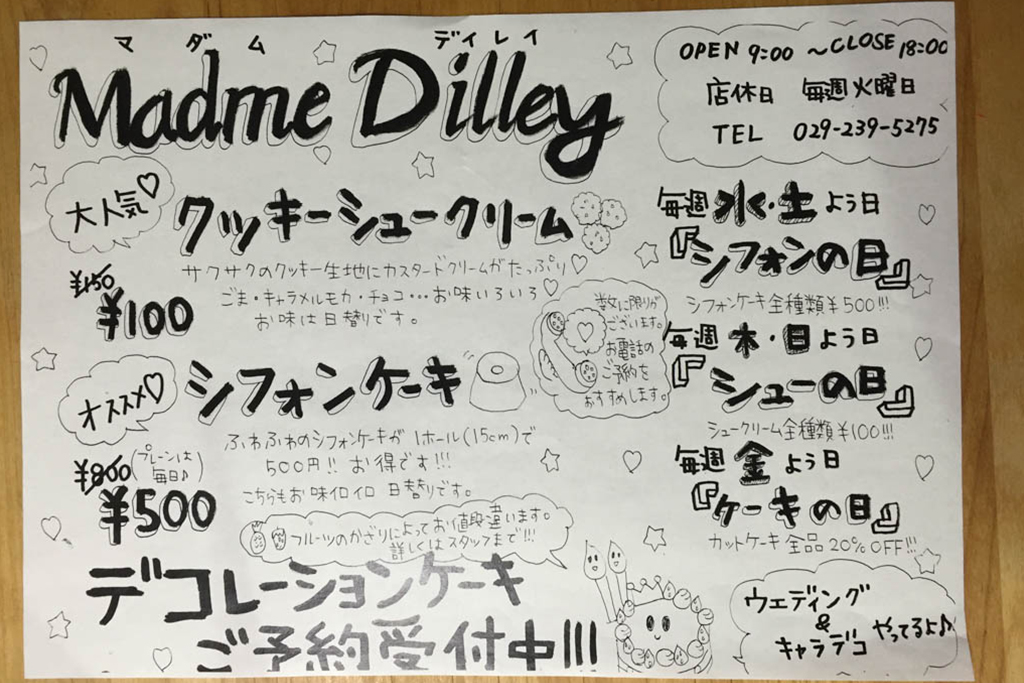 マダム ディレイ
Madme Dilley
OPEN 9:00 ～CLOSE 18:00
店休日 毎週火曜日
TEL 029-239-5275
大人気♡
クッキーシュークリーム
サクサクのクッキー生地にカスタードクリームがたっぷり♡
ごま・キャラメルモカ・チョコ…お味いろいろ♡
お味は日替りです。
¥150
¥100
数に限りが
ございます。
お電話の
ご予約を
おすすめします。
オススメ♡
シフォンケーキ
ふわふわのシフォンケーキが1ホール(15cm)で
500円!! お得です!!!
こちらもお味イロイロ 日替りです。
¥800
(プレーンは
毎日♪)
¥500
フルーツのかざりによってお値段違います。
詳しくはスタッフまで!!!
デコレーションケーキ
ご予約受付中!!!
毎週水・土よう日
『シフォンの日』
シフォンケーキ全種類¥500!!!
毎週木・日よう日
『シューの日』
シュークリーム全種類¥100!!!
毎週金よう日
『ケーキの日』
カットケーキ全品20%OFF!!!
ウエディング
&
キャラデコ
やってるよ♪